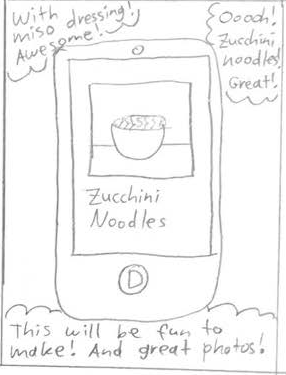 With dressing!
miso
Awesome!
Ooooh!
Zucchini
noodles!
Great!
Zucchini
Noodles
D
This will be fun to
make! And great photos!